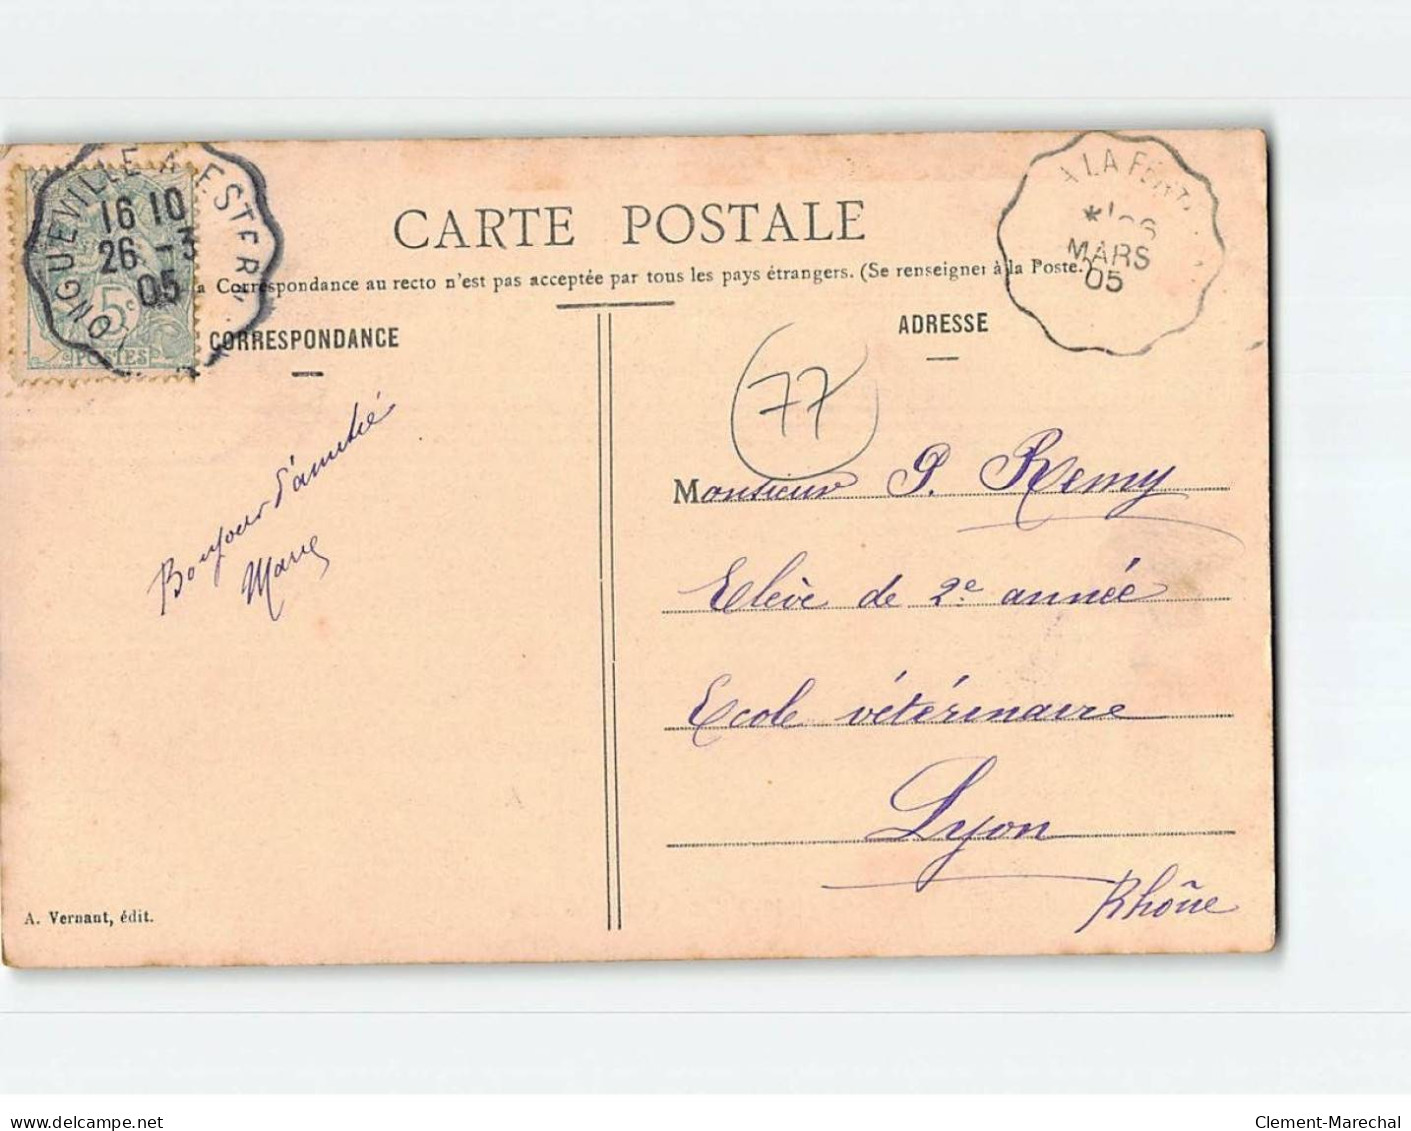 LONGUEVILLE A ESTERN
16 10
26 -3
05
5c
POSTES
A LA FERTE
MARS
05
CARTE POSTALE
a Correspondance au recto n'est pas acceptée par tous les pays étrangers. (Se renseigner à la Poste.)
CORRESPONDANCE
ADRESSE
77
Bonjour d'amitié
Marie
Monsieur P. Remy
Elève de 2e année
Ecole vétérinaire
Lyon
Rhône
A. Vernant, édit.
www.delcampe.net
Clement-Marechal